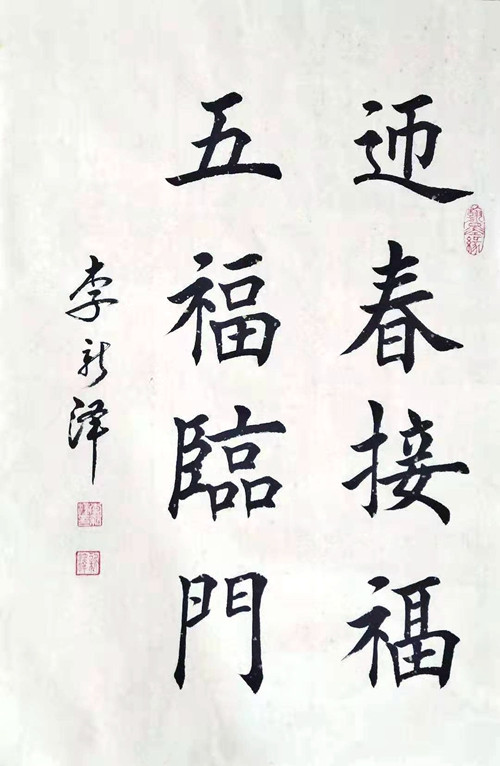 迎春接福
五福臨門
李新泽